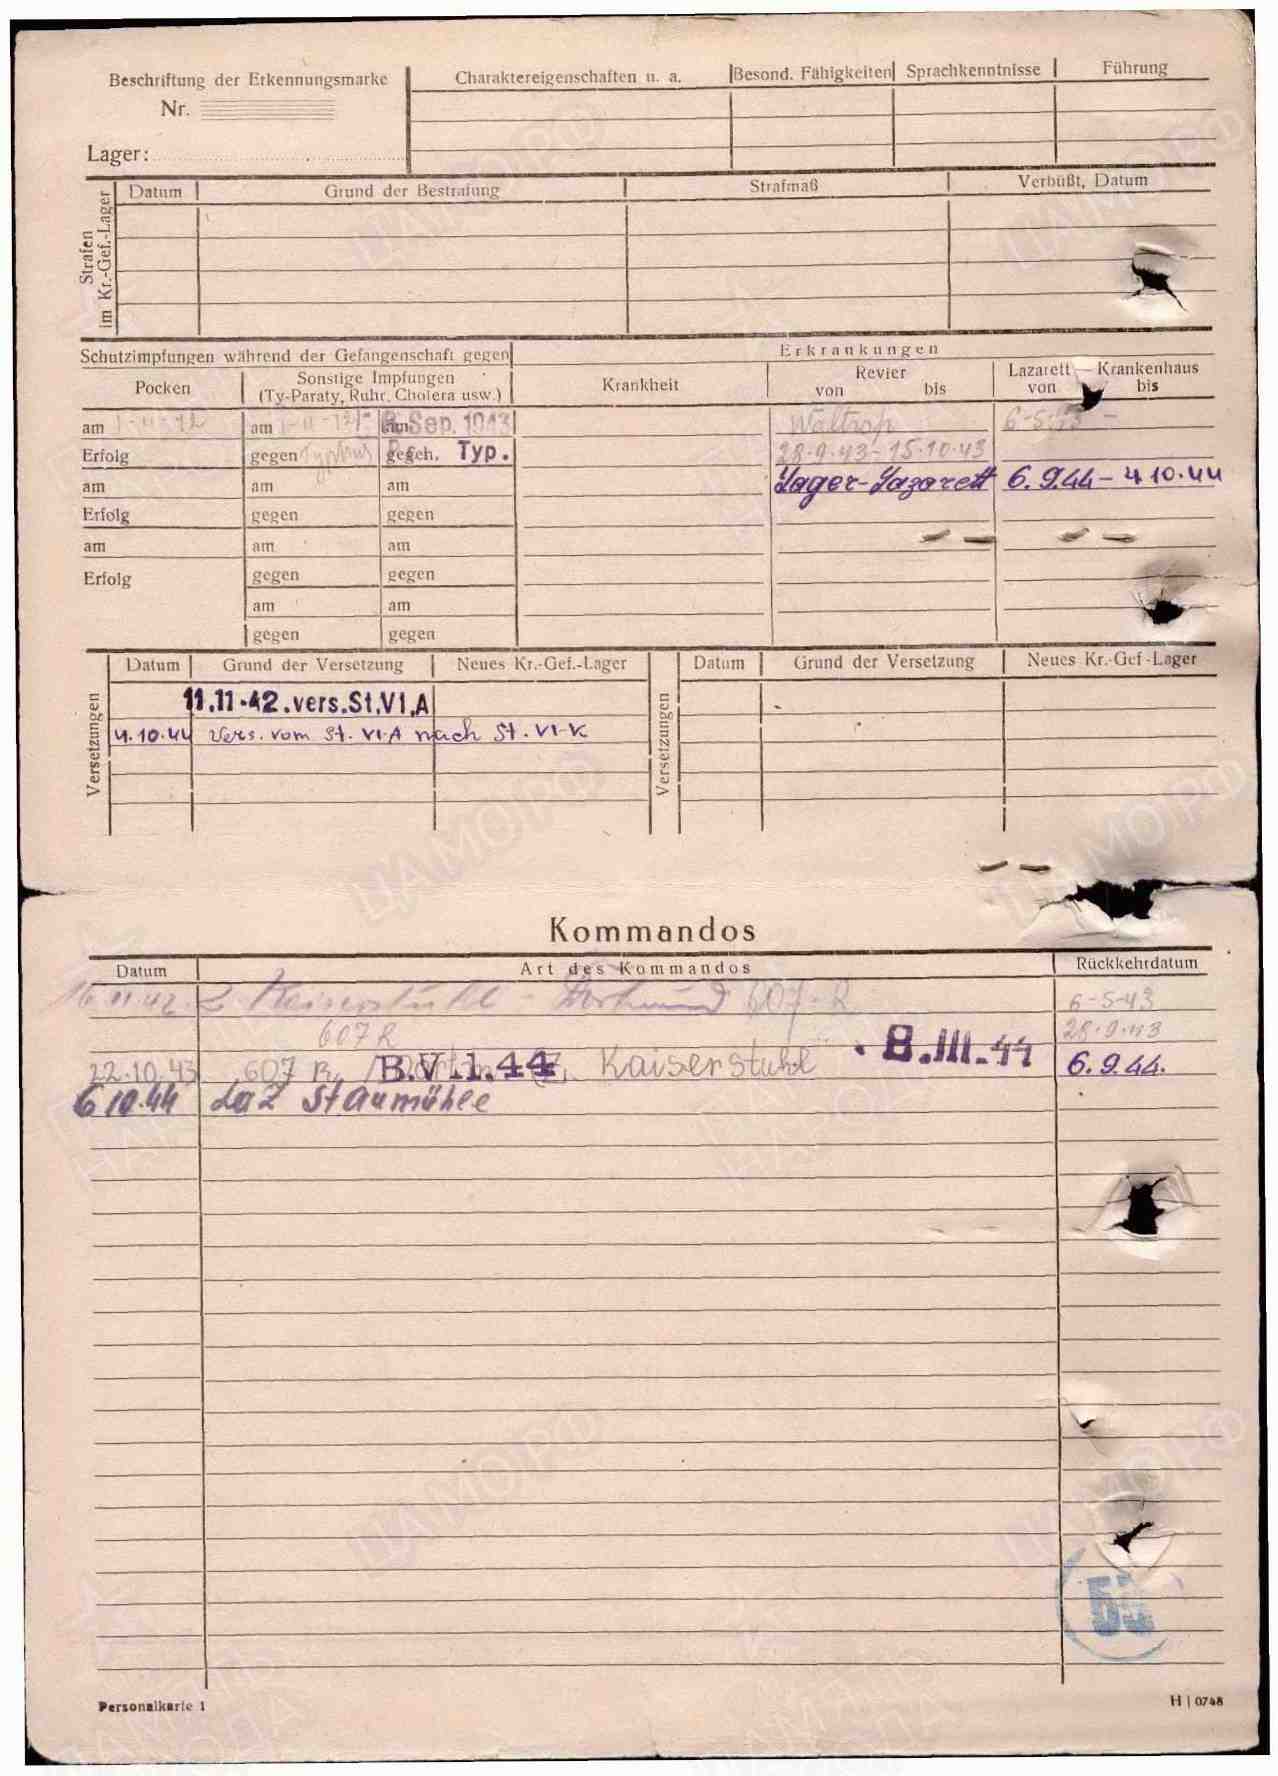 Beschriftung der Erkennungsmarke
Nr.
Lager:
Charaktereigenschaften u. a. Besond. Fähigkeiten Sprachkenntnisse Führung
Strafen im Kr.-Gef.-Lager
Datum Grund der Bestrafung Strafmaß Verbüßt, Datum
Schutzimpfungen während der Gefangenschaft gegen Erkrankungen
Pocken Sonstige Impfungen (Ty-Paraty, Ruhr, Cholera usw.) Krankheit Revier von bis Lazarett — Krankenhaus von bis
am am am Sep. 1943 Waltrop 6-5-43 -
Erfolg gegen Typhus gegen Typ. 28.9.43-15.10.43
am am am Lager-Lazarett 6.9.44 - 4.10.44
Erfolg gegen gegen
am am am
Erfolg gegen gegen
am am
gegen gegen
Versetzungen
Datum Grund der Versetzung Neues Kr.-Gef.-Lager
11.11.42.vers.St.VI,A
4.10.44 Vers. vom St. VI-A nach St. VI-K
Versetzungen
Datum Grund der Versetzung Neues Kr.-Gef-Lager
Kommandos
Datum Art des Kommandos Rückkehrdatum
16.11.42 Z. Kaiserstuhl - Dortmund 607-R 6-5-43
607 R 28.9.43
22.10.43 607 R. B.V.1.44 Kaiserstuhl 8.III.44 6.9.44.
6 10.44 Laz Staumühle
Personalkarte 1
H | 0748
ЦАМО РФ